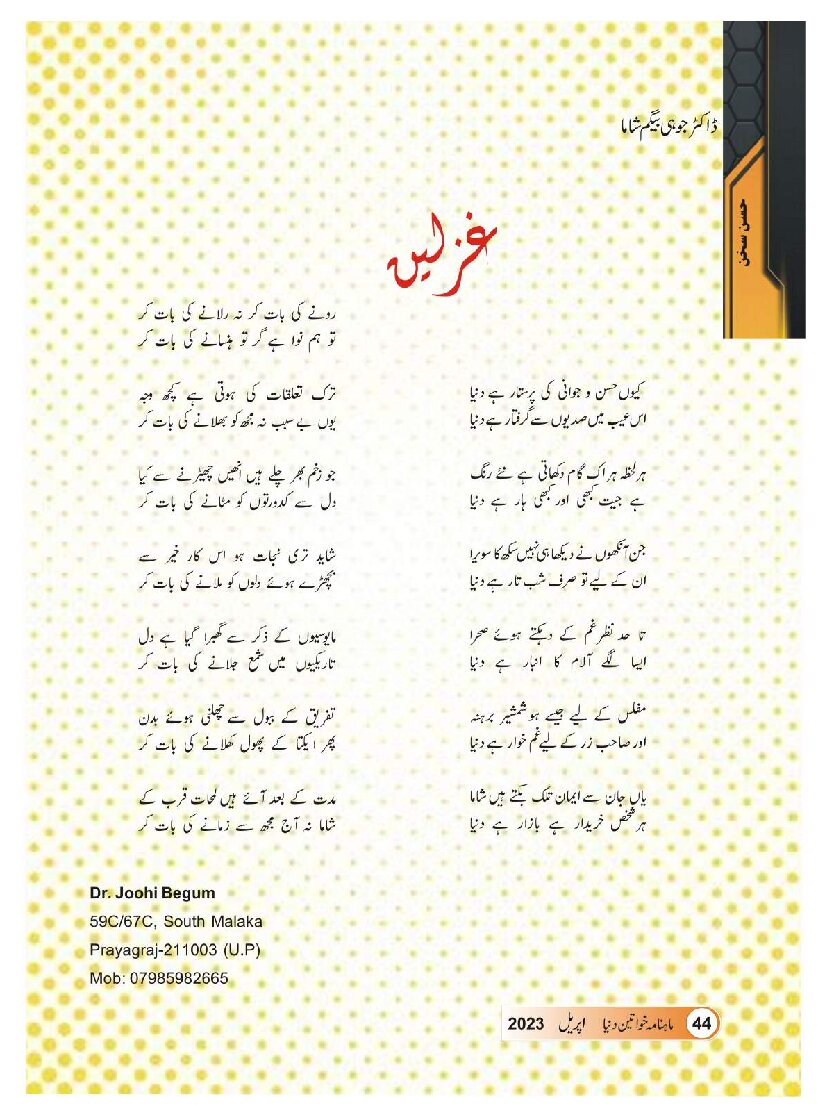 ڈاکٹر جوہی بیگم شاما
حسن سخن
غزلیں
کیوں حسن و جوانی کی پرستار ہے دنیا
اس عیب میں صدیوں سے گرفتار ہے دنیا
ہر لحظہ ہر اک گام دکھاتی ہے نئے رنگ
ہے جیت کبھی اور کبھی ہار ہے دنیا
جن آنکھوں نے دیکھا ہی نہیں سکھ کا سویرا
ان کے لیے تو صرف شب تار ہے دنیا
تا حد نظر غم کے دہکتے ہوئے صحرا
ایسا لگے آلام کا انبار ہے دنیا
مفلس کے لیے جیسے ہو شمشیر برہنہ
اور صاحب زر کے لیے غم خوار ہے دنیا
یاں جان سے ایمان تلک بکتے ہیں شاما
ہر شخص خریدار ہے بازار ہے دنیا
رونے کی بات کر نہ رلانے کی بات کر
تو ہم نوا ہے گر تو ہنسانے کی بات کر
ترک تعلقات کی ہوتی ہے کچھ وجہ
یوں بے سبب نہ مجھ کو بھلانے کی بات کر
جو زخم بھر چلے ہیں انھیں چھیڑنے سے کیا
دل سے کدورتوں کو مٹانے کی بات کر
شاید تری نجات ہو اس کار خیر سے
بچھڑے ہوئے دلوں کو ملانے کی بات کر
مایوسیوں کے ذکر سے گھبرا گیا ہے دل
تاریکیوں میں شمع جلانے کی بات کر
تفریق کے ببول سے چھلنی ہوئے بدن
پھر ایکتا کے پھول کھلانے کی بات کر
مدت کے بعد آئے ہیں لمحات قرب کے
شاما نہ آج مجھ سے زمانے کی بات کر
Dr. Joohi Begum
59C/67C, South Malaka
Prayagraj-211003 (U.P)
Mob: 07985982665
44 ماہنامہ خواتین دنیا اپریل 2023